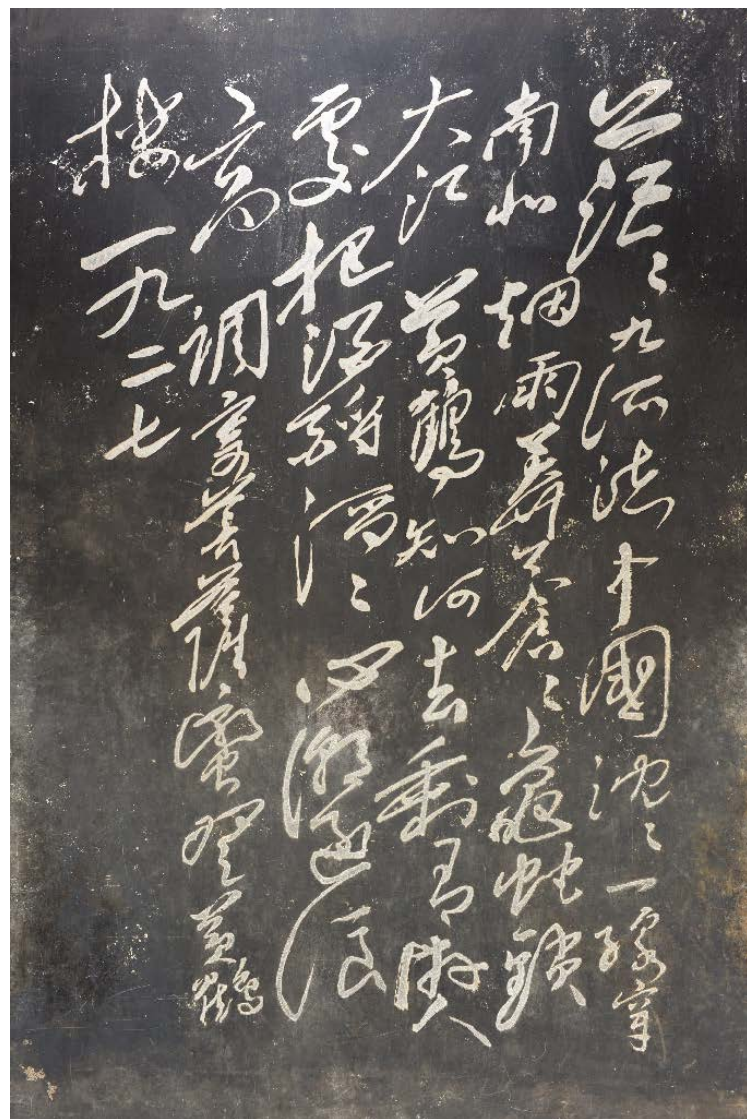 茫〻九派流中國沈〻一線穿
南北烟雨莽蒼〻龜蛇鎖
大江黃鶴知何去剩有遊人
處把酒酹滔〻心潮逐浪
高調寄菩薩蠻登黃鶴
樓一九二七